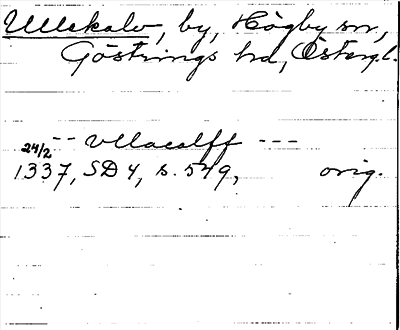 Ullekalv, by, Högby sn,
Göstrings hd, Östergl.
-- vllacalff ---
24/2
1337, SD 4, s. 549, orig.